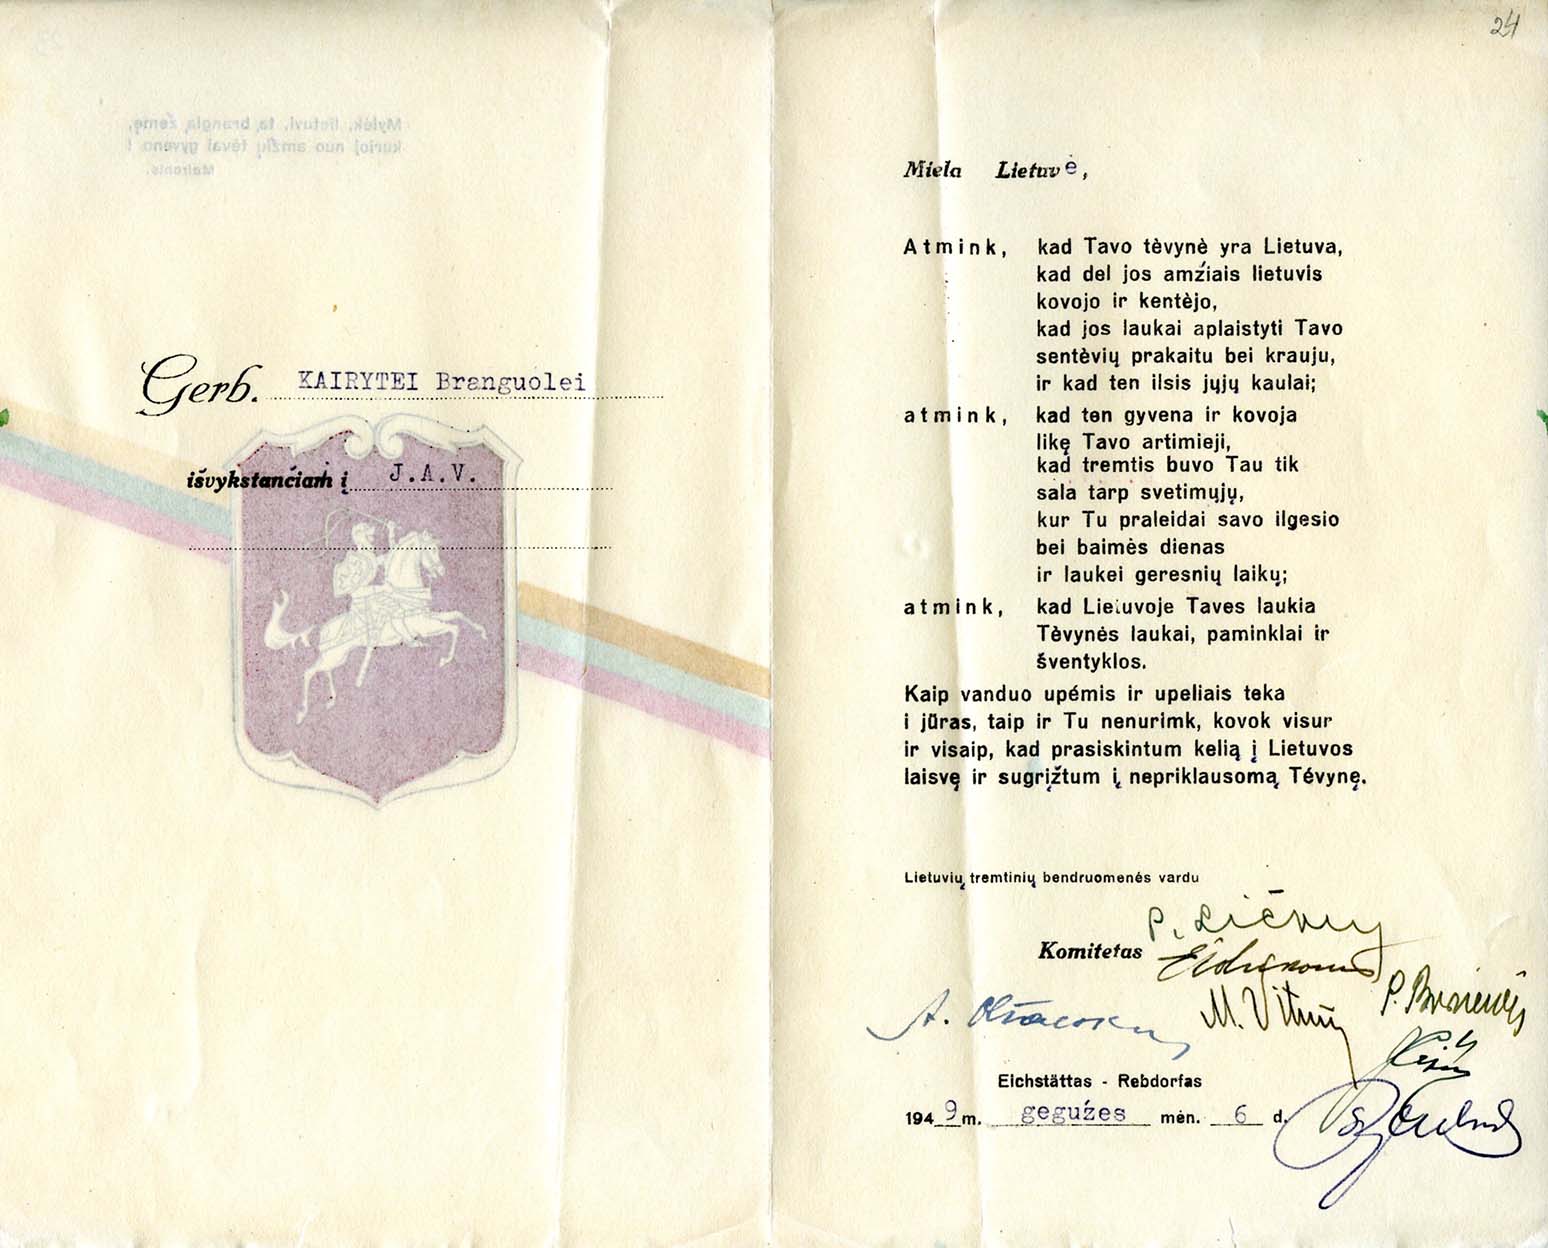 24
Mylėk, lietuvi, tą brangią žemę,
kurioj nuo amžių tėvai gyveno !
Maironis.
Gerb. KAIRYTEI Branguolei
išvykstančiam į J.A.V.
Miela Lietuvė,
Atmink, kad Tavo tėvynė yra Lietuva,
kad del jos amžiais lietuvis
kovojo ir kentėjo,
kad jos laukai aplaistyti Tavo
sentėvių prakaitu bei krauju,
ir kad ten ilsis jųjų kaulai;
atmink, kad ten gyvena ir kovoja
likę Tavo artimieji,
kad tremtis buvo Tau tik
sala tarp svetimųjų,
kur Tu praleidai savo ilgesio
bei baimės dienas
ir laukei geresnių laikų;
atmink, kad Lietuvoje Taves laukia
Tėvynės laukai, paminklai ir
šventyklos.
Kaip vanduo upémis ir upeliais teka
i jūras, taip ir Tu nenurimk, kovok visur
ir visaip, kad prasiskintum kelią į Lietuvos
laisvę ir sugrįžtum į nepriklausomą Tévynę.
Lietuvių tremtinių bendruomenės vardu
Komitetas
Eichstättas - Rebdorfas
1949 m. gegužes mėn. 6 d.